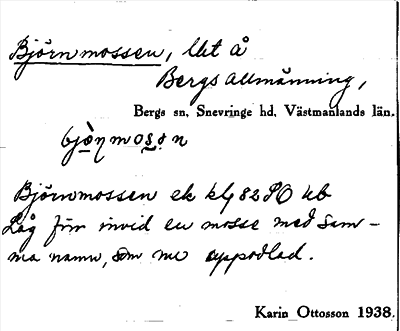 Björnmossen, lht å
Bergs allmänning,
Bergs sn, Snevringe hd, Västmanlands län.
bjò̱ṇmoso̱n
Björnmossen ek kbl 82 SO ub
Låg förr invid en mosse med sam-
ma namn, som nu uppodlad.
Karin Ottosson 1938.